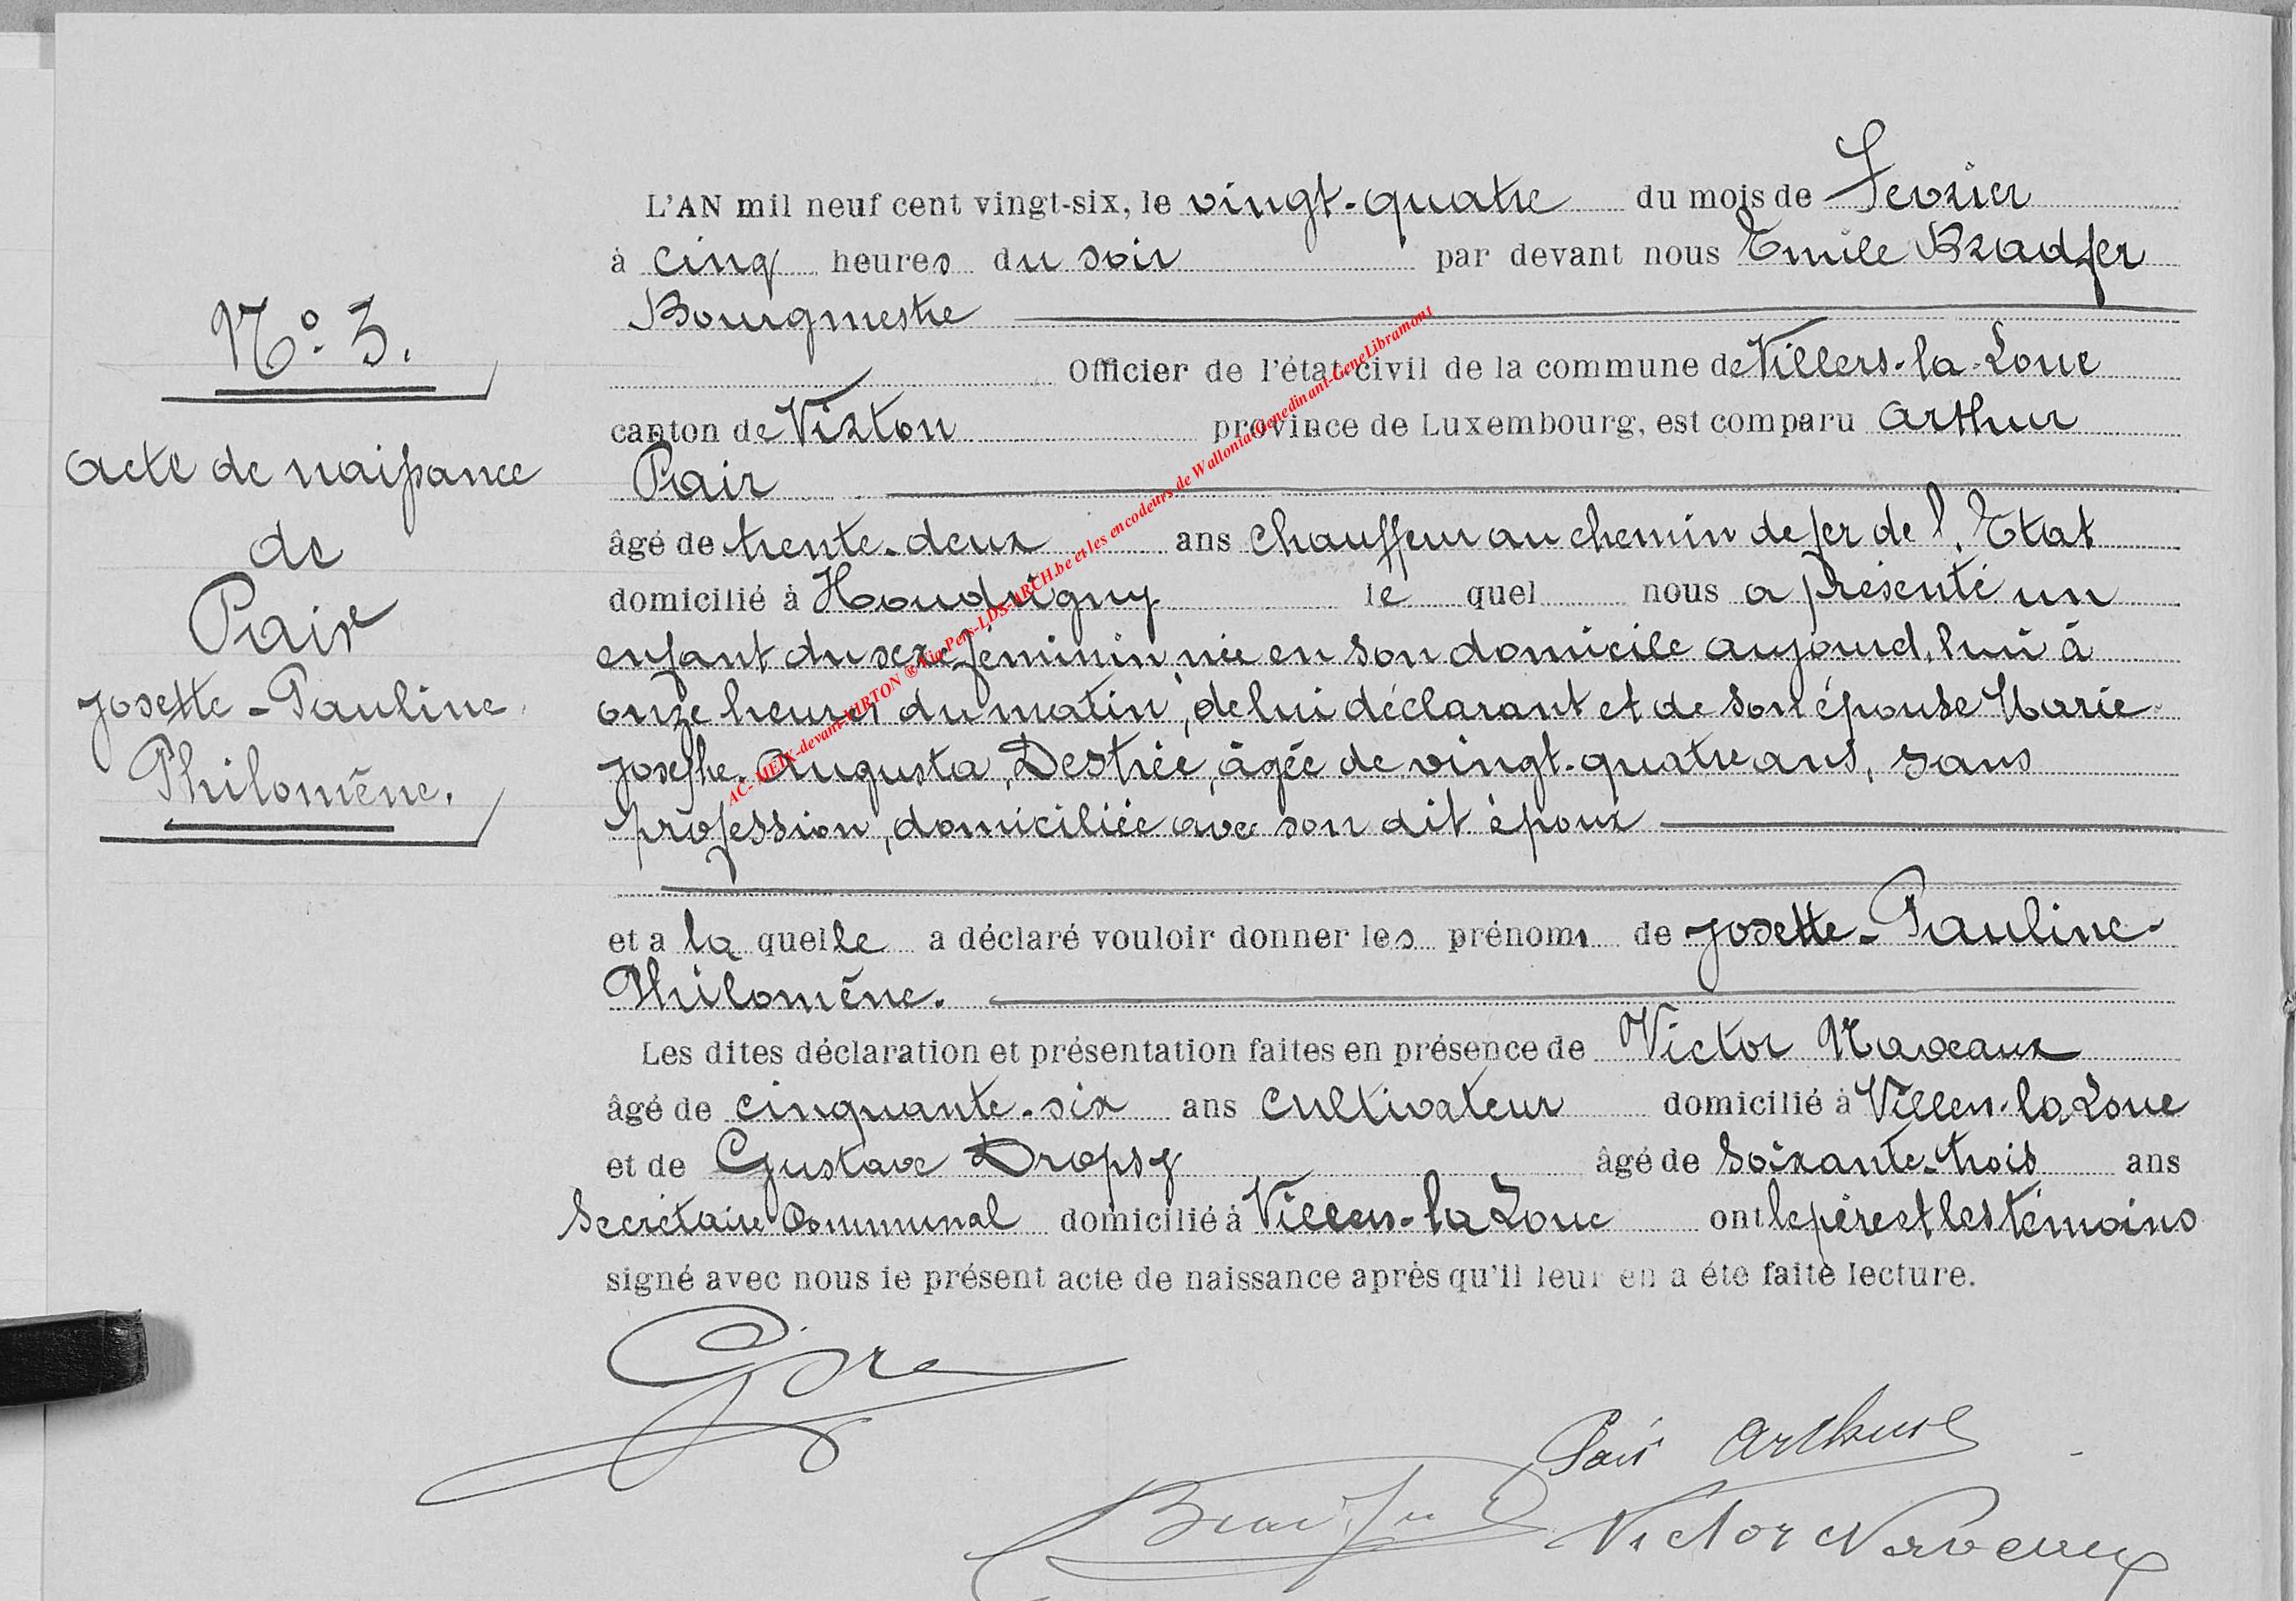 N° 3.
Acte de naissance
de
Pair
Josette - Pauline
Philomène.
L'AN mil neuf cent vingt-six, le vingt-quatre du mois de Fevrier
à cinq heures du soir par devant nous Emile Bradfer
Bourgmestre
Officier de l'état civil de la commune de Villers-la-Loue
canton de Virton province de Luxembourg, est comparu Arthur
Pair
âgé de trente-deux ans chauffeur au chemin de fer de l'Etat
domicilié à Houdrigny le quel nous a présenté un
enfant du sexe féminin, née en son domicile aujourd'hui à
onze heures du matin, de lui déclarant et de son épouse Marie
Josephe-Augusta, Destrée, âgée de vingt-quatre ans, sans
profession, domiciliée avec son dit époux
et a la quelle a déclaré vouloir donner les prénoms de Josette-Pauline-
Philomène.
Les dites déclaration et présentation faites en présence de Victor Naveaux
âgé de cinquante-six ans cultivateur domicilié à Villers-la-Loue
et de Gustave Dropsy âgé de soixante-trois ans
Secrétaire Communal domicilié à Villers-la-Loue ont le père et les témoins
signé avec nous le présent acte de naissance après qu'il leur en a été faite lecture.
Pair Arthur
Bradfer Victor Naveaux
AC- MEIX-devant-VIRTON ® Via Pers-LDS-ARCH.be et les encodeurs de Wallonia-Genedinant-GeneLibramont